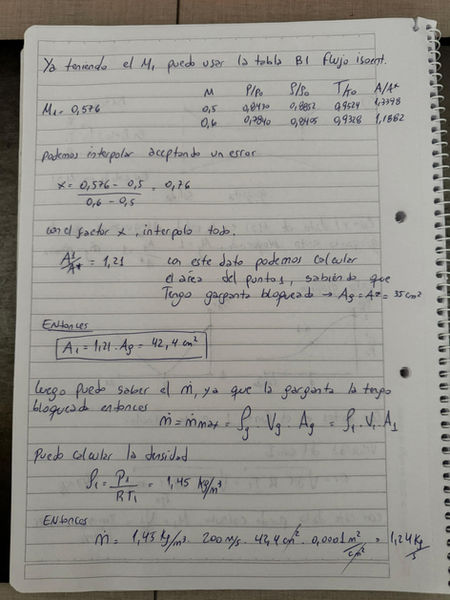 Ya teniendo el M1 puedo usar la tabla B1 flujo isoent.
M P/P0 ρ/ρ0 T/T0 A/A*
M1 = 0,576 0,5 0,8430 0,8852 0,9524 1,3398
0,6 0,7840 0,8405 0,9328 1,1882
Podemos interpolar aceptando un error
x = 0,576 - 0,5 / 0,6 - 0,5 = 0,76
con el factor x, interpolo todo.
A1/A* = 1,21 con este dato podemos calcular
el área del punto 1, sabiendo que
Tengo garganta bloqueada → Ag = A* = 35 cm²
Entonces
A1 = 1,21 . Ag = 42,4 cm²
Luego puedo saber el ṁ, ya que la garganta la tengo
bloqueada entonces
ṁ = ṁmax = ρg . Vg . Ag = ρ1 . V1 . A1
Puedo calcular la densidad
ρ1 = P1 / R T1 = 1,45 kg/m³
Entonces
ṁ = 1,45 kg/m³ . 200 m/s . 42,4 cm² . 0,0001 m²/cm² = 1,24 kg/s